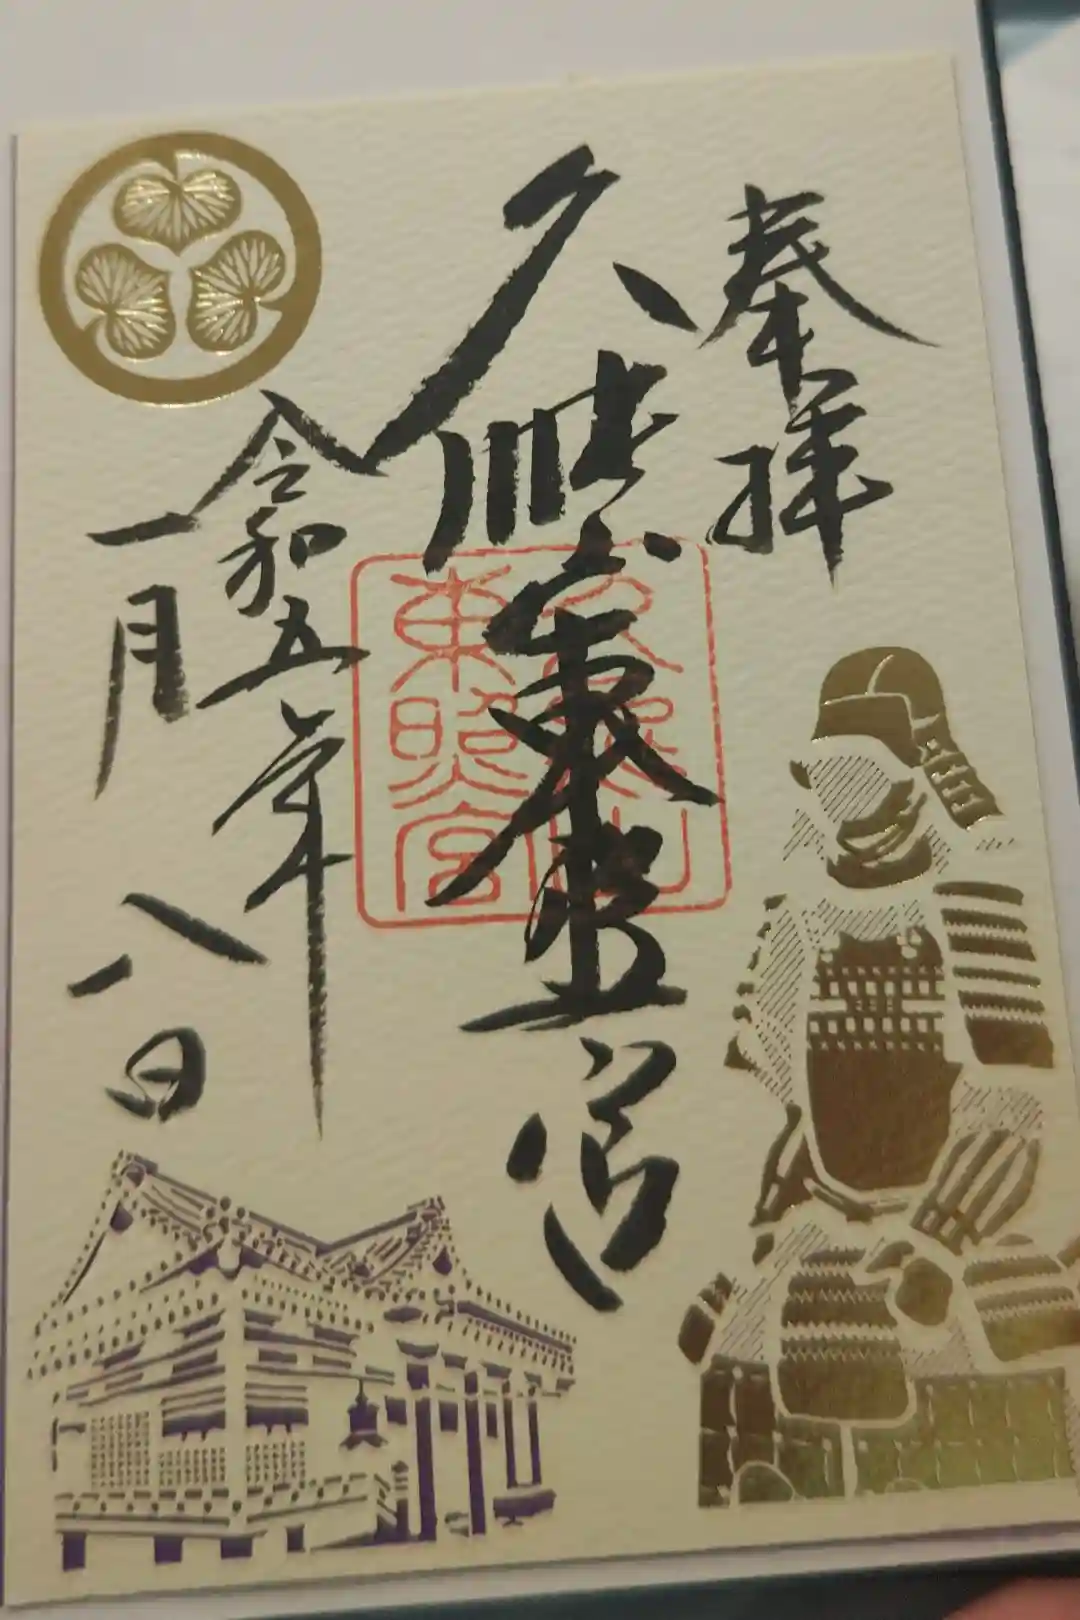 奉拝
久能山東照宮
令和五年
一月八日
久能山
東照宮